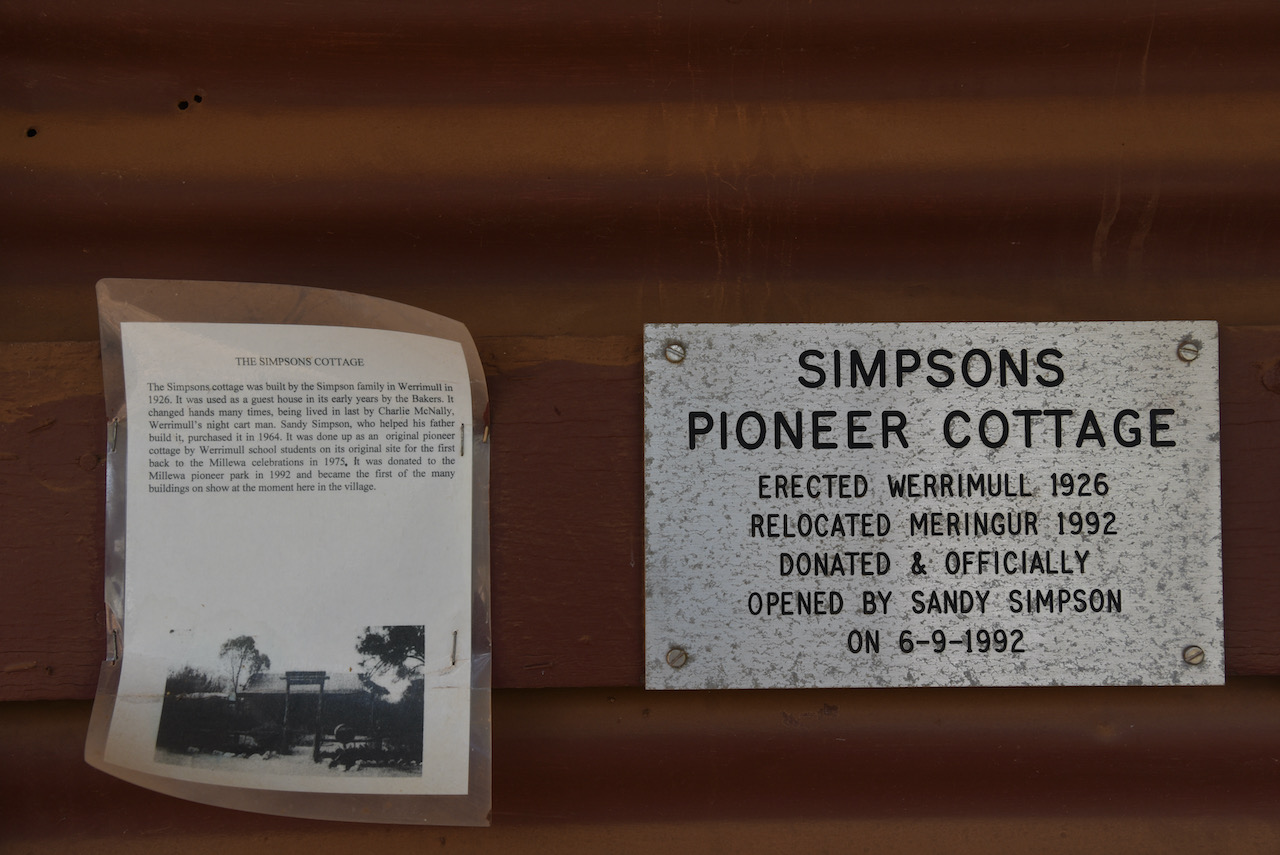 THE SIMPSONS COTTAGE
The Simpsons cottage was built by the Simpson family in Werrimull in
1926. It was used as a guest house in its early years by the Bakers. It
changed hands many times, being lived in last by Charlie McNally,
Werrimull's night cart man. Sandy Simpson, who helped his father
build it, purchased it in 1964. It was done up as an original pioneer
cottage by Werrimull school students on its original site for the first
back to the Millewa celebrations in 1975. It was donated to the
Millewa pioneer park in 1992 and became the first of the many
buildings on show at the moment here in the village.
SIMPSONS
PIONEER COTTAGE
ERECTED WERRIMULL 1926
RELOCATED MERINGUR 1992
DONATED & OFFICIALLY
OPENED BY SANDY SIMPSON
ON 6-9-1992